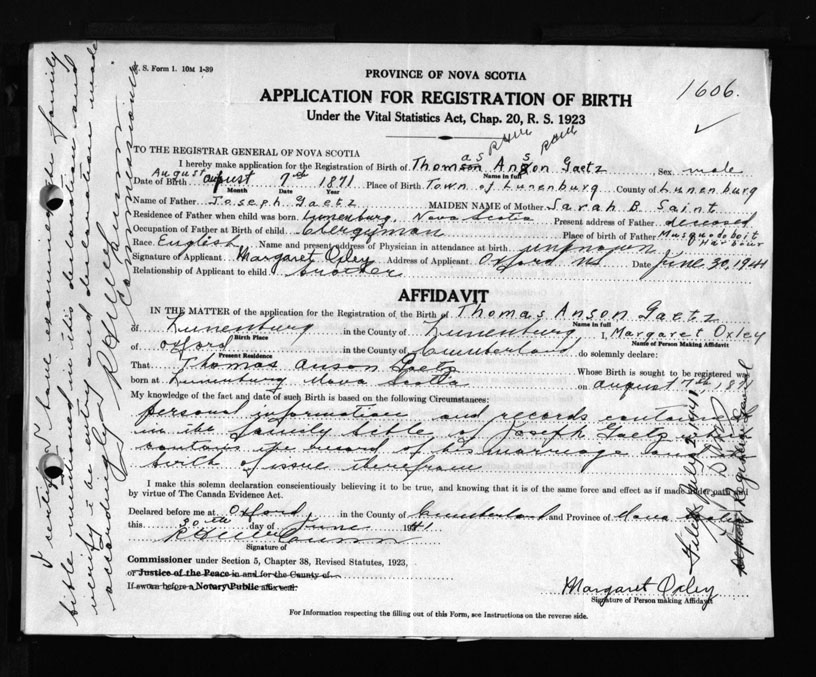 V. S. Form 1. 10M 1-39
PROVINCE OF NOVA SCOTIA
1606.
APPLICATION FOR REGISTRATION OF BIRTH
Under the Vital Statistics Act, Chap. 20, R. S. 1923
TO THE REGISTRAR GENERAL OF NOVA SCOTIA
I hereby make application for the Registration of Birth of Thomas Anson Gaetz Sex male
Name in full
Date of Birth August 7th 1871 Place of Birth Town of Lunenburg County of Lunenburg
Month Day Year
Name of Father Joseph Gaetz MAIDEN NAME of Mother Sarah B. Saint
Residence of Father when child was born Lunenburg, Nova Scotia Present address of Father deceased
Occupation of Father at Birth of child Clergyman Place of birth of Father Musquodoboit Harbour
Race English Name and present address of Physician in attendance at birth unknown
Signature of Applicant Margaret Oxley Address of Applicant Oxford NS Date June 30, 1941
Relationship of Applicant to child brother
AFFIDAVIT
IN THE MATTER of the application for the Registration of the Birth of Thomas Anson Gaetz
Name in full
of Lunenburg in the County of Lunenburg I, Margaret Oxley
Birth Place Name of Person Making Affidavit
of Oxford in the County of Cumberland do solemnly declare:
Present Residence
That Thomas Anson Gaetz Whose Birth is sought to be registered was
born at Lunenburg Nova Scotia on August 7th 1871
My knowledge of the fact and date of such Birth is based on the following Circumstances:
personal information and records contained
in the family bible of Joseph Gaetz
contains the record of his marriage and
birth of issue therefrom
I make this solemn declaration conscientiously believing it to be true, and knowing that it is of the same force and effect as if made under oath and
by virtue of The Canada Evidence Act.
Declared before me at Oxford in the County of Cumberland and Province of Nova Scotia
this 30th day of June 1941
Signature of
Commissioner under Section 5, Chapter 38, Revised Statutes, 1923,
or Justice of the Peace in and for the County of
If sworn before a Notary Public affix seal.
Margaret Oxley
Signature of Person making Affidavit
For Information respecting the filling out of this Form, see Instructions on the reverse side.
I certify I have examined the family
bible mentioned in this declaration and
verify the entry and declaration made
accordingly
Commissioner
Filed July 2, 1941
Deputy Registrar General